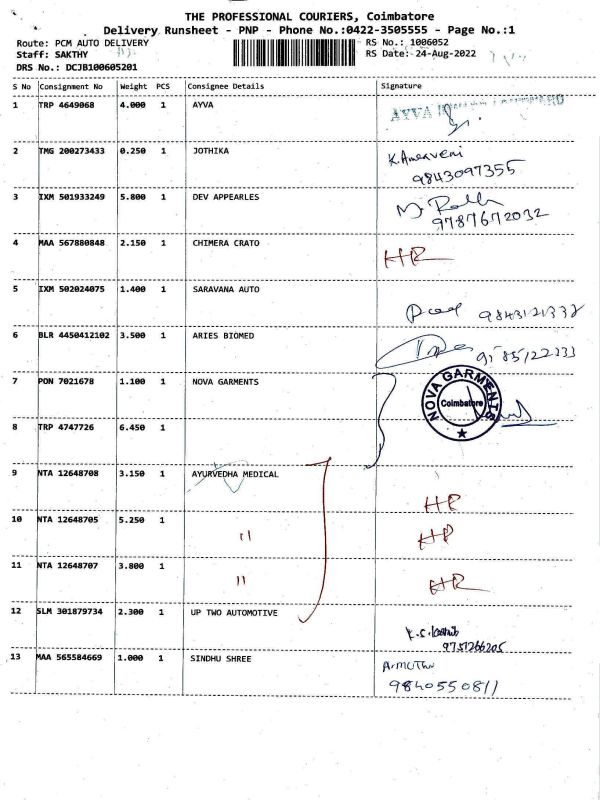 THE PROFESSIONAL COURIERS, Coimbatore
Delivery Runsheet - PNP - Phone No.:0422-3505555 - Page No.:1
Route: PCM AUTO DELIVERY RS No.: 1006052
Staff: SAKTHY RS Date: 24-Aug-2022
DRS No.: DCJB100605201
S No Consignment No Weight PCS Consignee Details Signature
1 TRP 4649068 4.000 1 AYVA
AYVA
2 TMG 200273433 0.250 1 JOTHIKA
9843097355
3 IXM 501933249 5.800 1 DEV APPEARLES
9787672032
4 MAA 567880848 2.150 1 CHIMERA CRATO HR
5 IXM 502024075 1.400 1 SARAVANA AUTO
6 BLR 4450412102 3.500 1 ARIES BIOMED
7 PON 7021678 1.100 1 NOVA GARMENTS
NOVA GARMENTS
Coimbatore
8 TRP 4747726 6.450 1
9 NTA 12648708 3.150 1 AYURVEDHA MEDICAL
HR
10 NTA 12648705 5.250 1 " HR
11 NTA 12648707 3.800 1 " HR
12 SLM 301879734 2.300 1 UP TWO AUTOMOTIVE
9751266205
13 MAA 565584669 1.000 1 SINDHU SHREE
9840550811